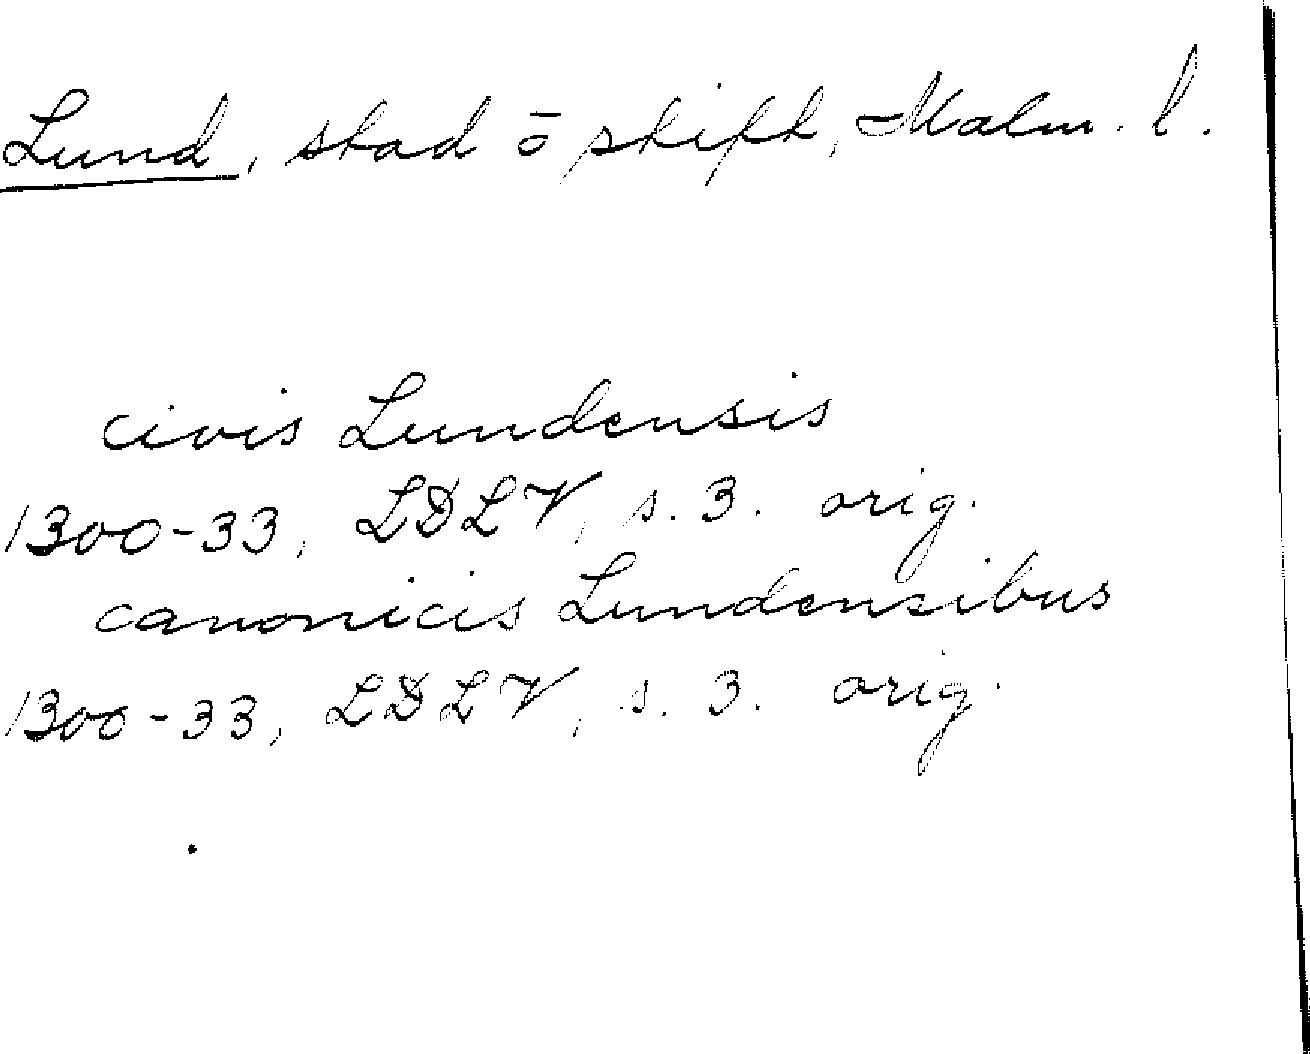 Lund, stad ō stift, Malm. l.
civis Lundensis
1300-33, LDLV, s. 3. orig.
canonicis Lundensibus
1300-33, LDLV, s. 3. orig.